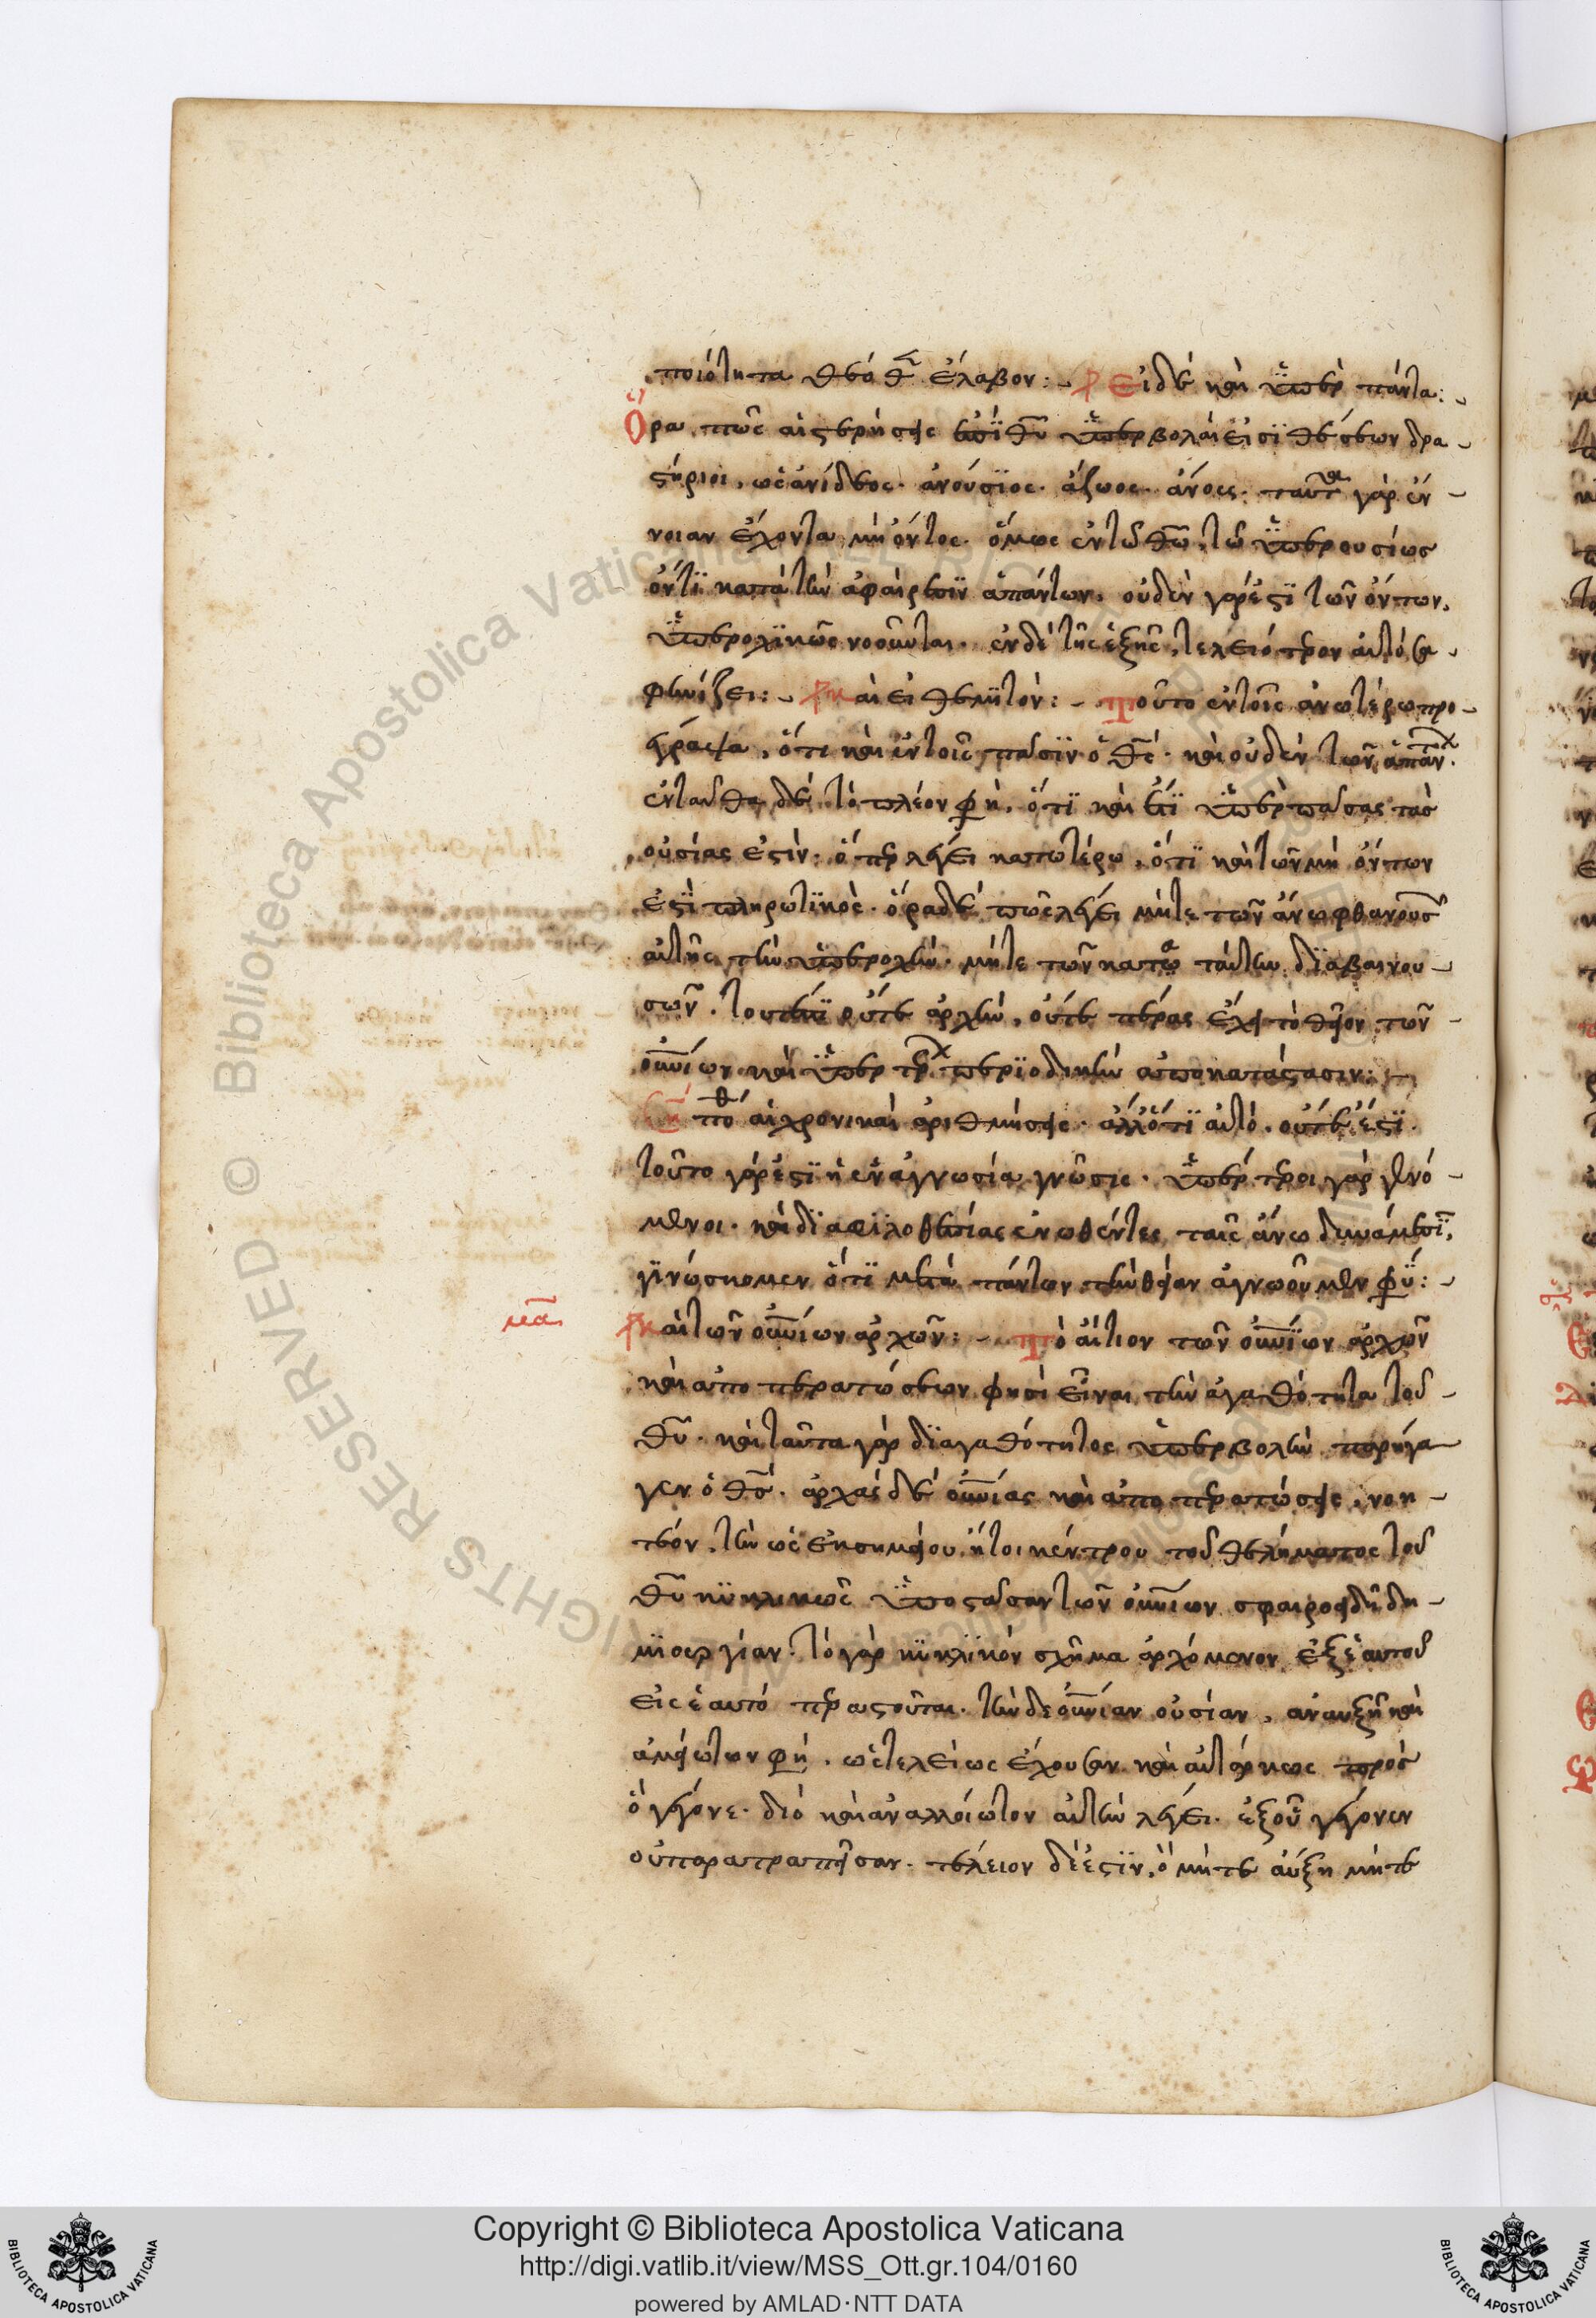 ποιότητα θεόθεν ἔλαβον: εἰ δὲ καὶ ὑπὲρ πάντα:
Ὅρα πῶς αἱ στερήσεις ἐπὶ θυ ὑπερβολαί εἰσι θέσεων δρα
στήριοι, ὡς ἀνίδεος. ἀνούσιος. ἄζωος. ἄνους. ταῦτα γὰρ ἔν
νοιαν ἔχοντα μὴ ὄντος. ὅμως ἐν τῶ θω τῶ ὑπερουσίως
ὄντι κατὰ τὴν ἀφαίρεσιν ἁπάντων. οὐδὲν γάρ ἐστι τῶν ὄντων.
ὑπεροχικῶς νοοῦνται. ἐν δὲ τῆς ἑξῆς τελειότερον αὐτὸ σα
φηνίζει: καὶ εἰ θεμιτόν: Τοῦτο ἐν τοῖς ἀνωτέρω προ
έγραψα, ὅτι καὶ ἐν τοῖς πᾶσιν ὁ θς. καὶ οὐδὲν τῶν ἁπάν.
ἐνταῦθα δὲ τὸ πλέον φη. ὅτι καὶ ἔτι ὑπὲρ πάσας τὰς
οὐσίας ἐστίν. ὅπερ λέγει κατωτέρω, ὅτι καὶ τῶν μὴ ὄντων
ἐστὶ πληρωτικός. ὅρα δὲ πῶς λέγει μήτε τῶν ἄνω φθανούσ
αὐτῆς τὴν ὑπεροχήν. μήτε τῶν κάτω ταύτην διαβαινου
σῶν. τουτέστι οὔτε ἀρχὴν, οὔτε πέρας ἔχει τὸ θεῖον τῶν
αἰωνίων καὶ ὑπὲρ τὴν περιοδικὴν ἀποκατάστασιν:
αἱ χρονικαὶ ἀριθμήσεις. ἀλλ' ὅτι αὐτὸ. οὔτε ἐστι.
τοῦτο γάρ ἐστι ἡ ἐν ἀγνωσία γνῶσις. ὑπέρτεροι γὰρ γενό
μενοι. καὶ διὰ φιλοθεΐας ἑνωθέντες ταῖς ἄνω δυνάμεσι,
γινώσκομεν ὅτι μετὰ πάντων τὴν θείαν ἀγνωοῦμεν φύ:
μα καὶ τῶν αἰωνίων ἀρχῶν: Τὸ αἴτιον τῶν αἰωνίων ἀρχῶν
καὶ ἀποπερατώσεων φησὶ εἶναι τὴν ἀγαθότητα τοῦ
θυ. καὶ ταῦτα γὰρ δι' ἀγαθότητος ὑπερβολὴν παρήγα
γεν ὁ θς. ἀρχὰς δὲ αἰωνίας καὶ ἀποπερατώσεις, νοη
τέον, τὴν ὡς ἐκ σημείου ἤτοι κέντρου τοῦ θελήματος τοῦ
θυ κυκλικῶς ὑποστᾶσαν τῶν αἰωνίων σφαιροειδῆ δη
μιουργίαν. τὸ γὰρ κυκλικὸν σχῆμα ἀρχόμενον ἐξ ἑαυτοῦ
εἰς ἑαυτό περατοῦται. τὴν δὲ αἰωνίαν οὐσίαν, ἀναυξῆ καὶ
ἀμείωτον φη. ὡς τελείως ἔχουσαν καὶ αὐτάρκως πρὸς
ὃ γέγονε. διὸ καὶ ἀναλλοίωτον αὐτὴν λέγει. ἐξ οὗ γέγονεν
οὐ παρατραπεῖσαν. τέλειον δέ ἐστιν, ὃ μήτε αὔξη μήτε
Copyright © Biblioteca Apostolica Vaticana
http://digi.vatlib.it/view/MSS_Ott.gr.104/0160
powered by AMLAD·NTT DATA
BIBLIOTECA APOSTOLICA VATICANA
BIBLIOTECA APOSTOLICA VATICANA